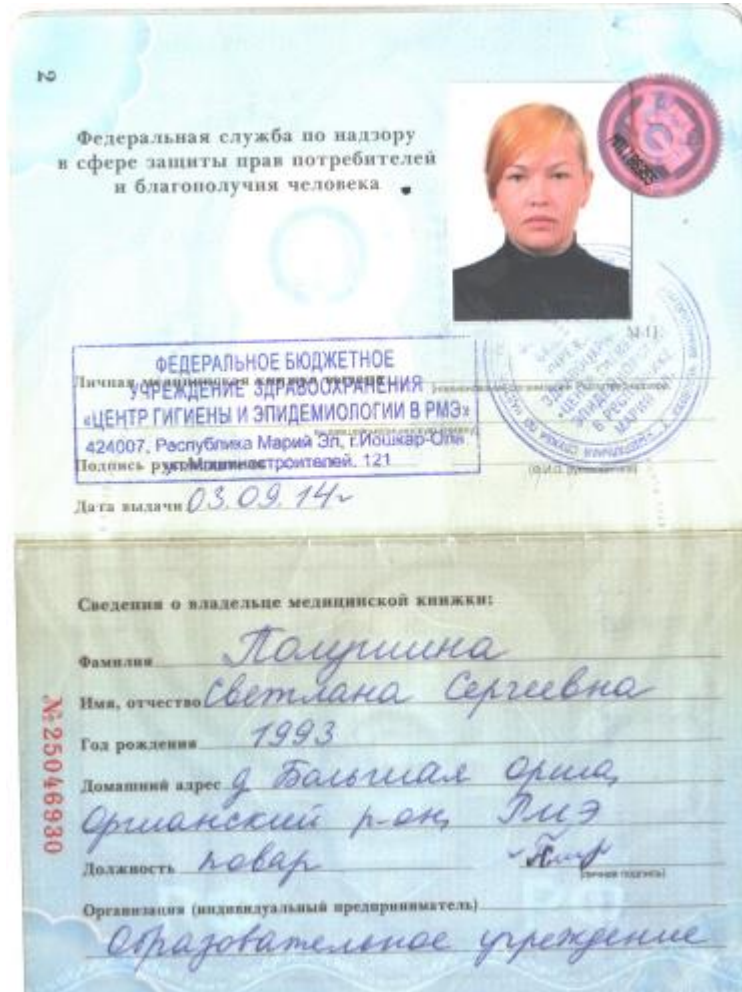 2
Федеральная служба по надзору
в сфере защиты прав потребителей
и благополучия человека
М.П.
ФЕДЕРАЛЬНОЕ БЮДЖЕТНОЕ
УЧРЕЖДЕНИЕ ЗДРАВООХРАНЕНИЯ
«ЦЕНТР ГИГИЕНЫ И ЭПИДЕМИОЛОГИИ В РМЭ»
424007, Республика Марий Эл, г.Йошкар-Ола
ул. Машиностроителей, 121
Личная медицинская книжка
Подпись
Дата выдачи 03.09.14г
Сведения о владельце медицинской книжки:
Фамилия Полушина
Имя, отчество Светлана Сергеевна
Год рождения 1993
Домашний адрес д Большая Орша,
Оршанский р-он, РМЭ
Должность повар
(личная подпись)
Организация (индивидуальный предприниматель)
Образовательное учреждение
№25046930